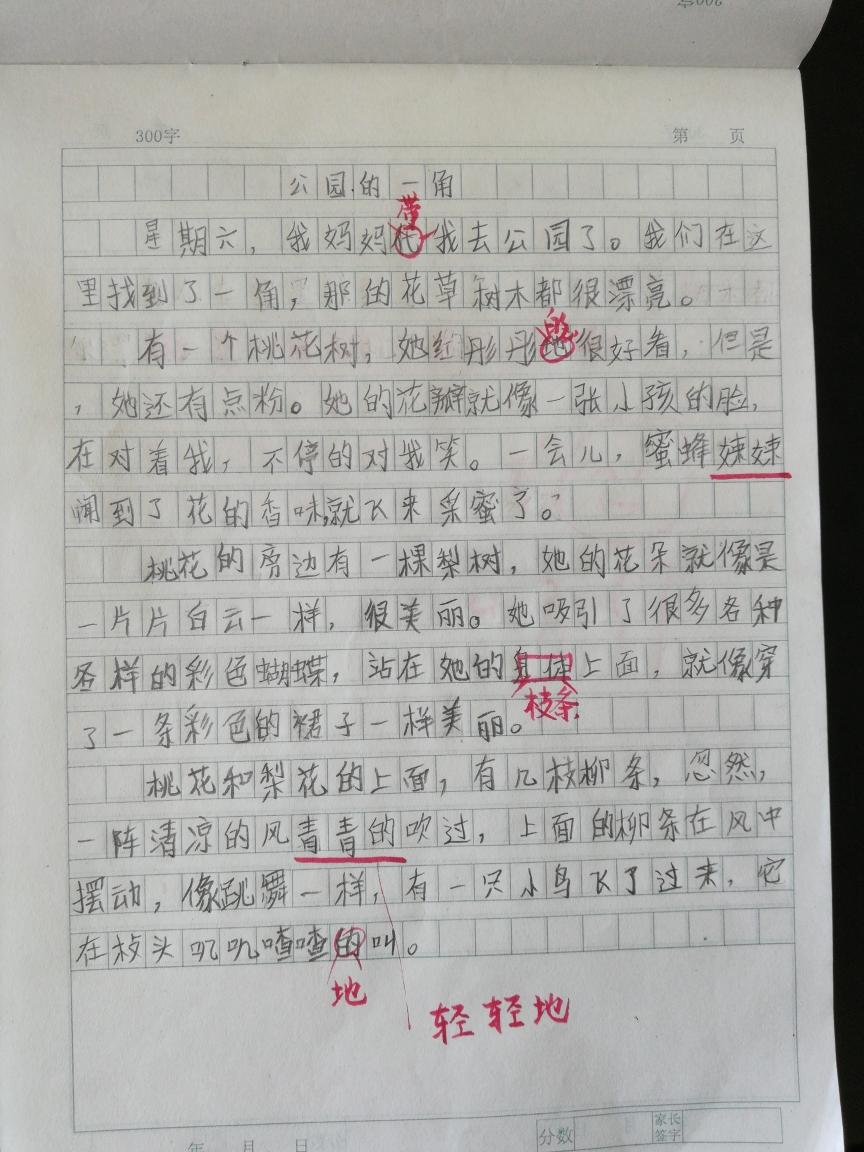 300字 第 页
公园的一角
带
星期六，我妈妈代我去公园了。我们在这
里找到了一角，那的花草树木都很漂亮。
的
有一个桃花树，她红彤彤地很好看，但是
，她还有点粉。她的花瓣就像一张小孩的脸，
在对着我，不停的对我笑。一会儿，蜜蜂妹妹
闻到了花的香味，就飞来采蜜了。
桃花的旁边有一棵梨树，她的花朵就像是
一片片白云一样，很美丽。她吸引了很多各种
各样的彩色蝴蝶，站在她的身体上面，就像穿
枝条
了一条彩色的裙子一样美丽。
桃花和梨花的上面，有几枝柳条，忽然，
一阵清凉的风青青的吹过，上面的柳条在风中
摆动，像跳舞一样，有一只小鸟飞了过来，它
在枝头叽叽喳喳的叫。
地
轻轻地
年 月 日 分数 家长签字